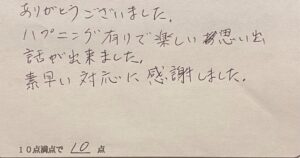 ありがとうございました。
ハプニング有りで楽しい思い出
話が出来ました。
素早い対応に感謝しました。
10点満点で 10 点